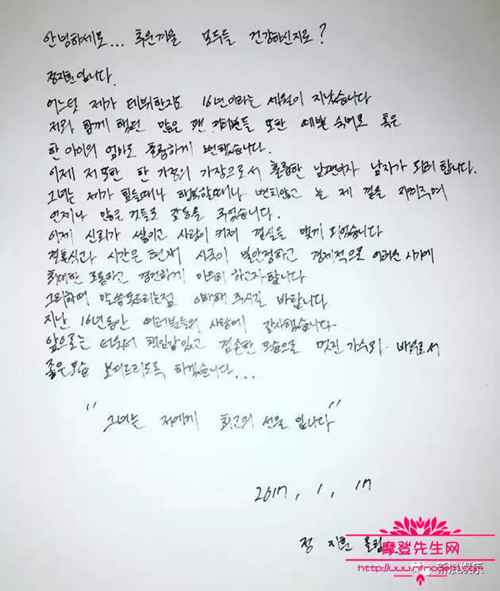 안녕하세요... 추운겨울 모두들 건강하신지요?
정지훈입니다.
어느덧 제가 데뷔한지도 16년이라는 세월이 지났습니다
저와 함께 했던 많은 팬 여러분들 또한 예쁜 숙녀로 혹은
한 아이의 엄마로 훌륭하게 변했습니다.
이제 저 또한 한 가정의 가장으로서 훌륭한 남편이자 남자가 되려 합니다.
그녀는 제가 힘들때나 행복할때나 변치않고 늘 제 곁을 지켜주며
언제나 많은 것들로 감동을 주었습니다.
이제 신뢰가 쌓이고 사랑이 커져 결실을 맺게 되었습니다
결혼식과 시간은 현재 시국이 불안정하고 경제적으로 어려운 시기에
최대한 조용하고 경건하게 하고자 합니다
그리하여 말씀못드리는점 이해해 주시길 바랍니다
지난 16년동안 여러분들의 사랑에 감사했습니다
앞으로는 더욱더 책임감있고 겸손한 모습으로 멋진 가수와 배우로서
좋은모습 보여드리도록 하겠습니다...
"그녀는 저에게 최고의 선물 입니다"
2017. 1. 17
정 지훈 올림
摩登先生网